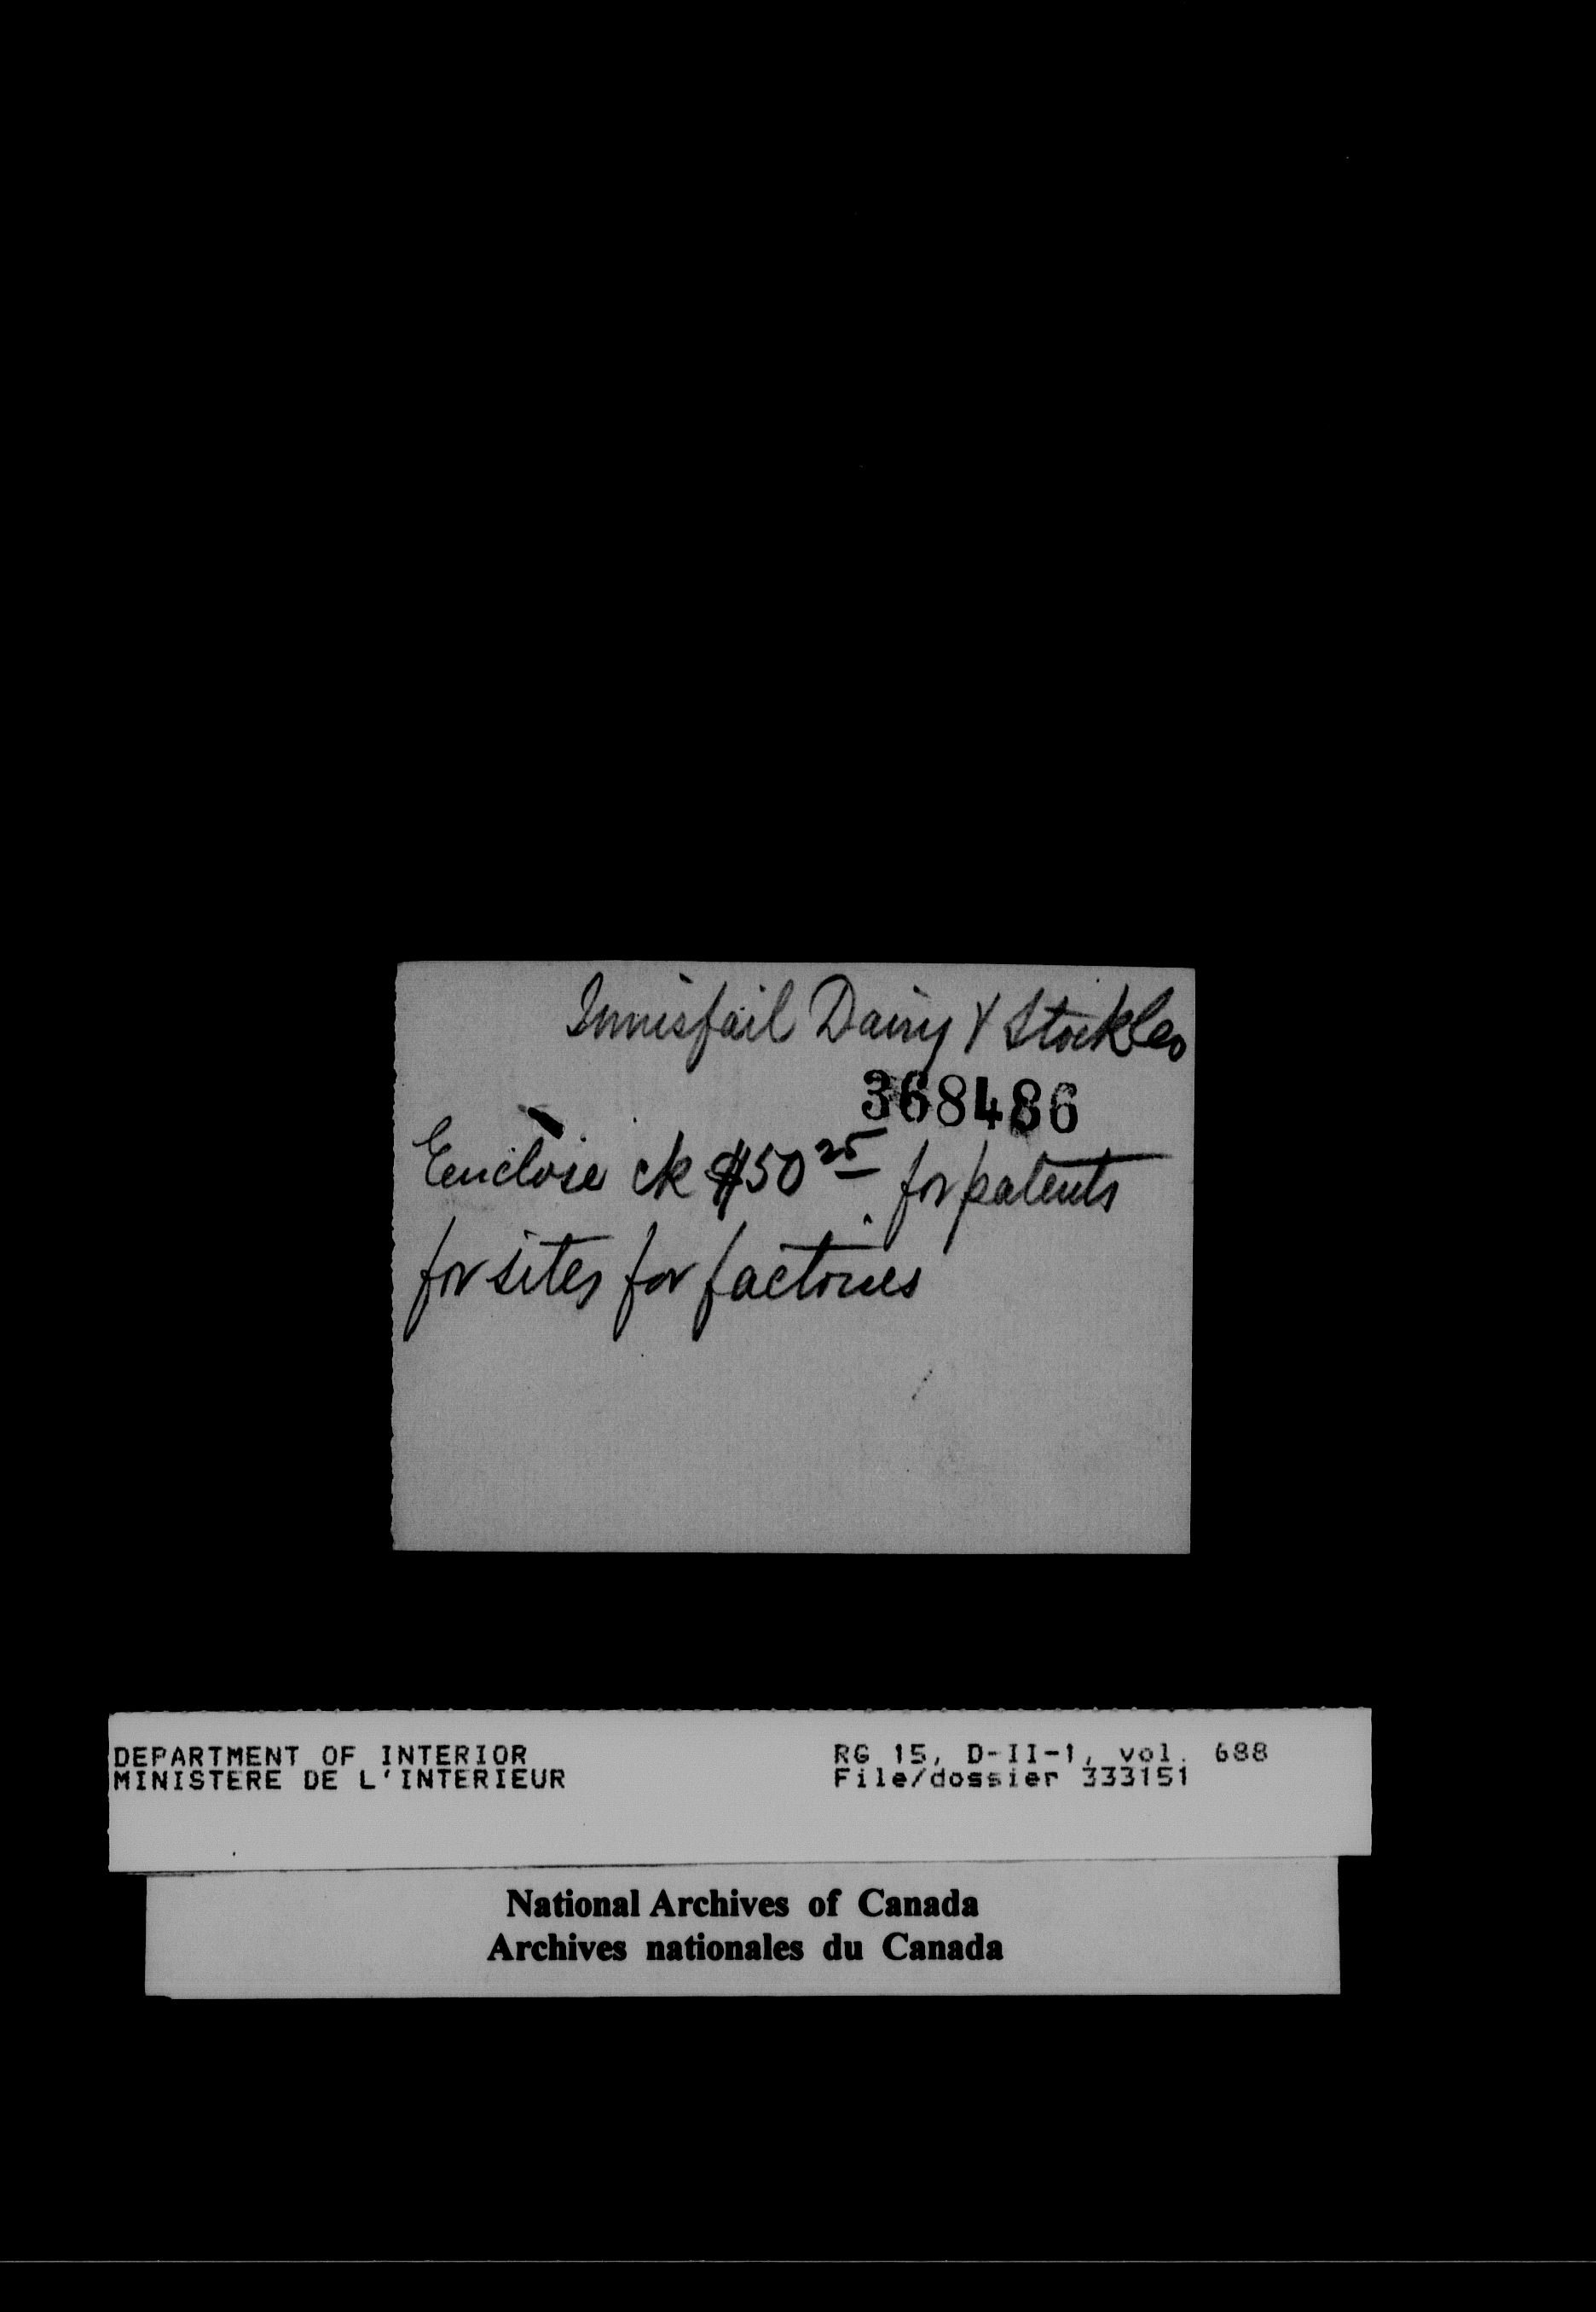 Innisfail Dairy & Stock Co
368486
Enclose ck $50 25 for patents
for sites for factories
DEPARTMENT OF INTERIOR
MINISTERE DE L'INTERIEUR
RG 15, D-II-1, vol. 688
File/dossier 333151
National Archives of Canada
Archives nationales du Canada